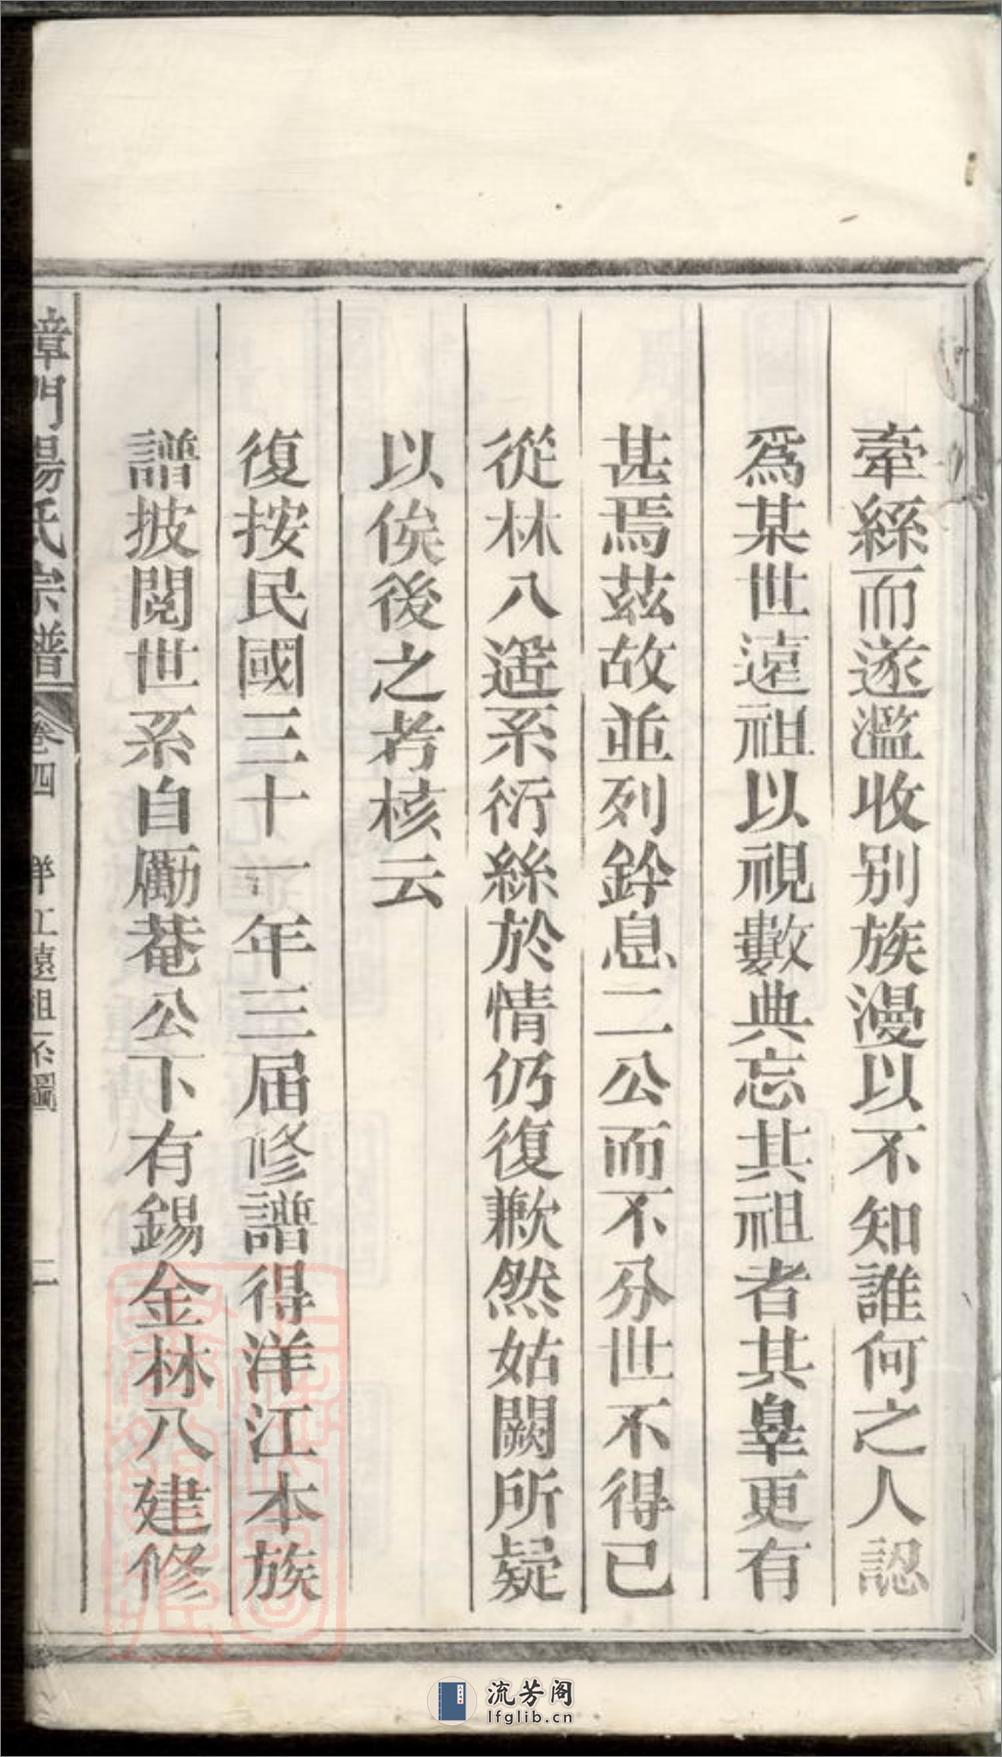 牽絲而遂濫收别族漫以不知誰何之人認
爲某世遠祖以視數典忘其祖者其辠更有
甚焉茲故並列鈐息二公而不分世不得已
從林八遥系衍絲於情仍復歉然姑闕所疑
以俟後之考核云
復按民國三十一年三届修譜得洋江本族
譜披閲世系自勵菴公下有錫金林八建修
漳門湯氏宗譜 卷四 洋江遠祖系圖 二
流芳阁
lfglib.cn